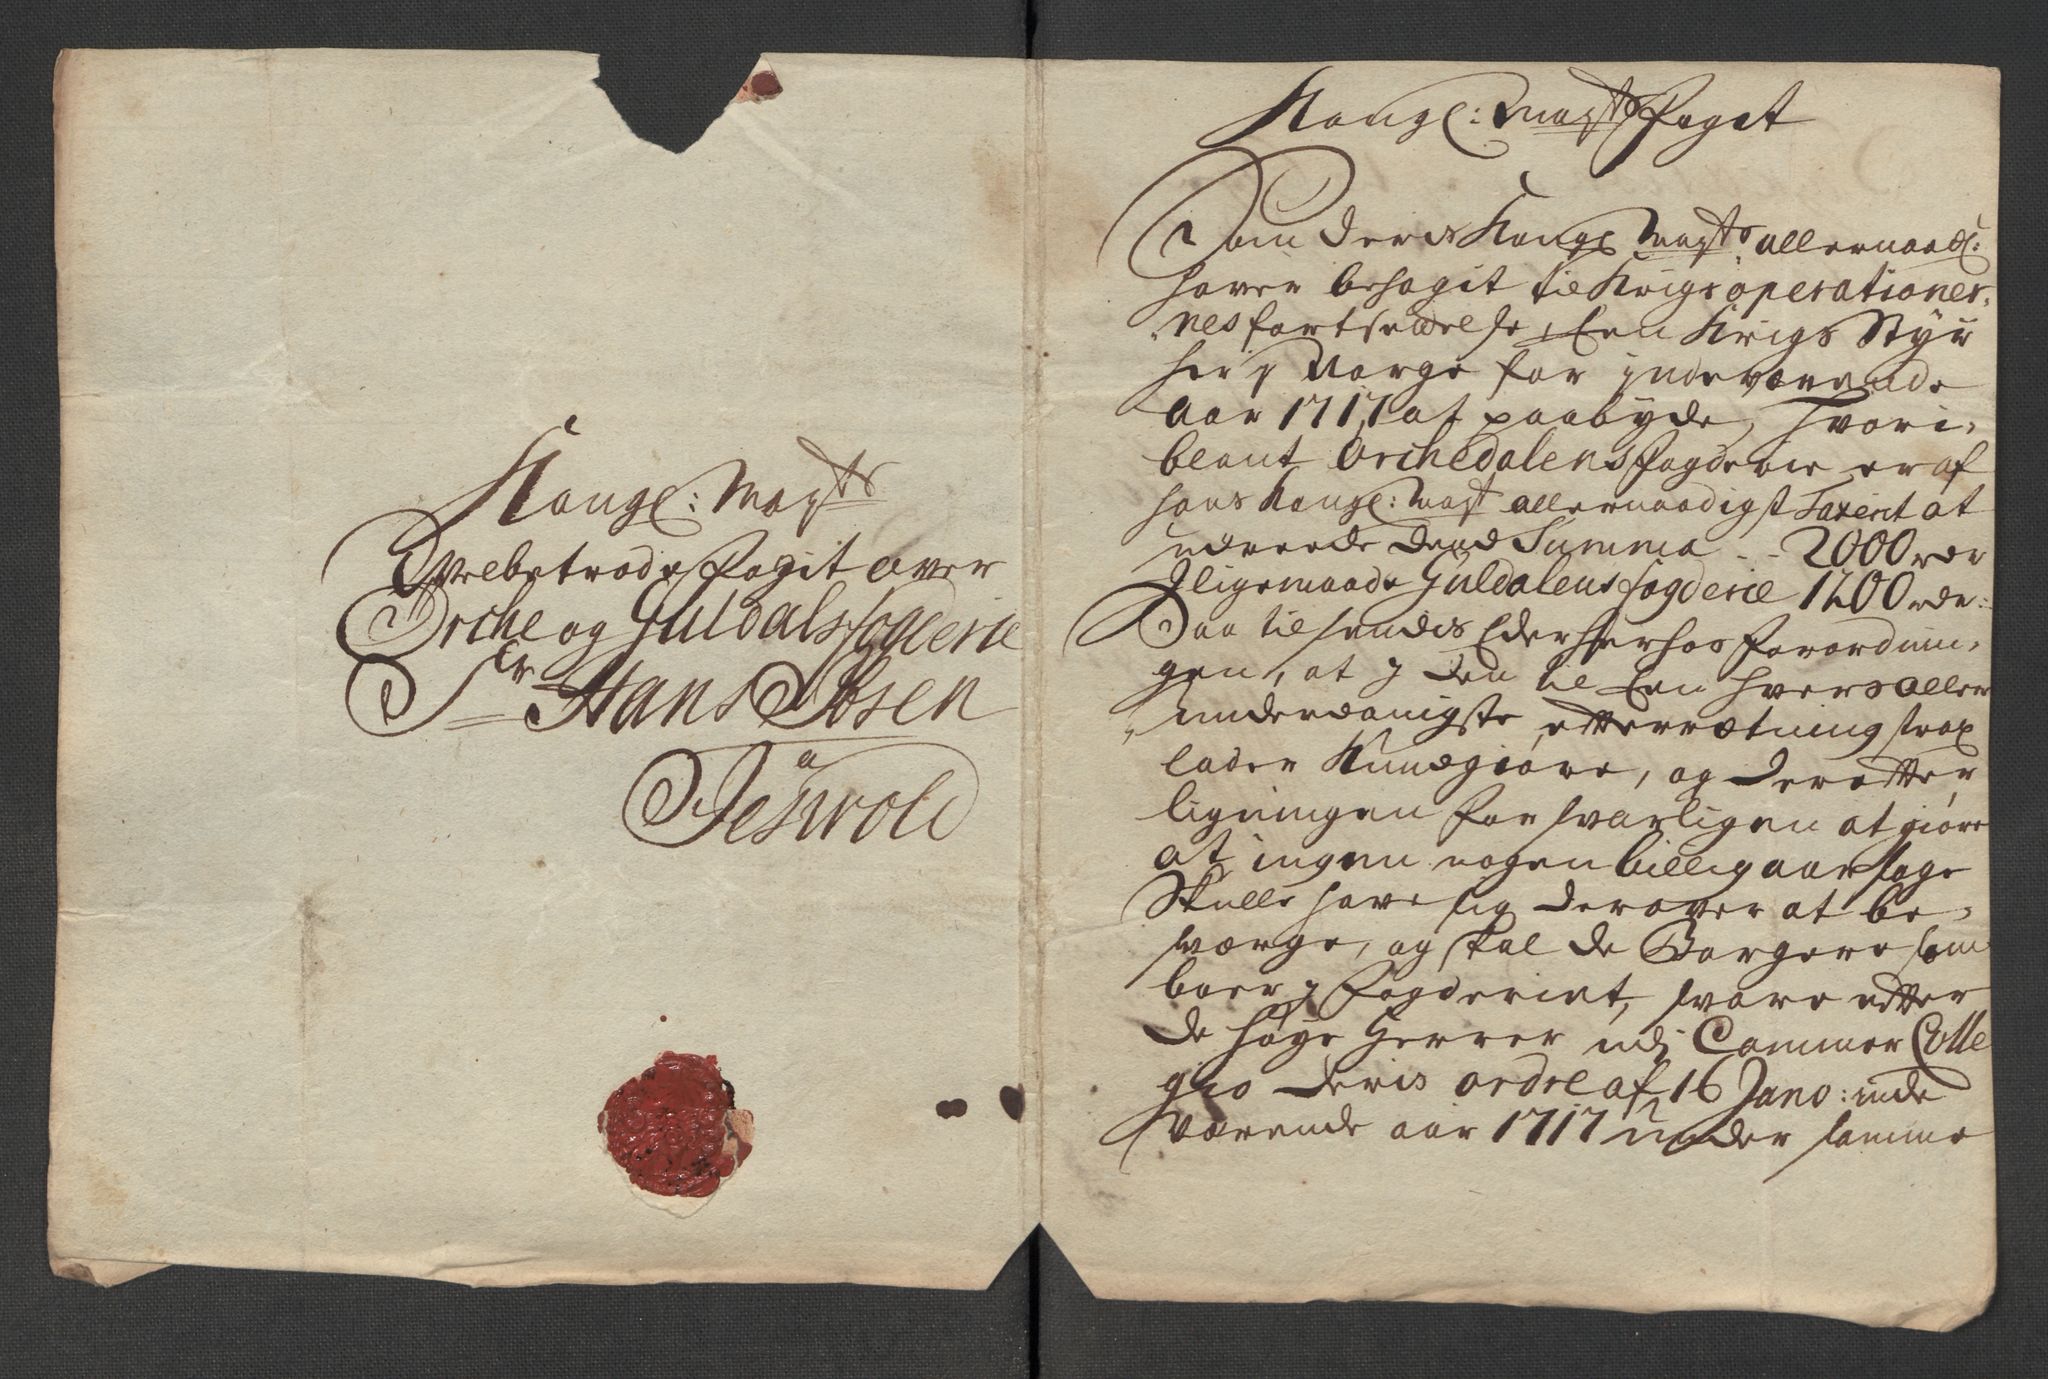 Kongl: Mayts
Velbetrode Fogit over
Orche og Guldals fogderie
Sr Hans Ibsen
a
Jeswold
Kongl: Mayts Foget
Som Deris Kongl Mayts allernaadl:
haver behagit til Krigs operationer,
nes fortsettelse, Een Krigs Styr
her j Norge for jndeværende
aar 1717 at paabyde, hvori,
blant Orchedalens fogderie er af
hans Kongl: Mayt allernaadigst Taxerit at
udreede dend Summa - - 2000 rdr
Jligemaade Guldalens fogderie 1200 rdr:
Saa tilsendis Eder herhos forordnin,
gen, at j den til Een hvers aller
underdanigste efterrætning strax
lader Kundgiøre, og derefter
ligningen forsvarligen at giøre
at ingen nogen billig aarsage
Skulle have sig derover at be,
sværge, og skal de Borgere som
boer j fogderiet, svare efter
de høye Herrer udj Cammer Colle
gio deris ordre af 16 Jano: inde
værende aar 1717 under samme